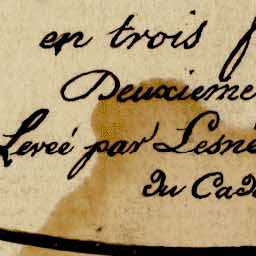 en trois
Deuxieme
Levée par Lesné
du Cad